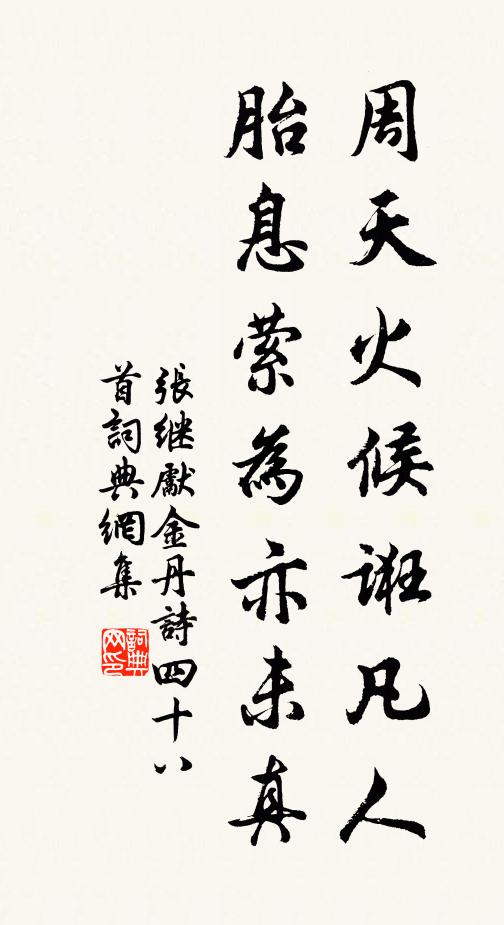 周天火候誑凡人
胎息縈為亦未真
張继獻金丹詩四十八
首詞典網集
詞典网印